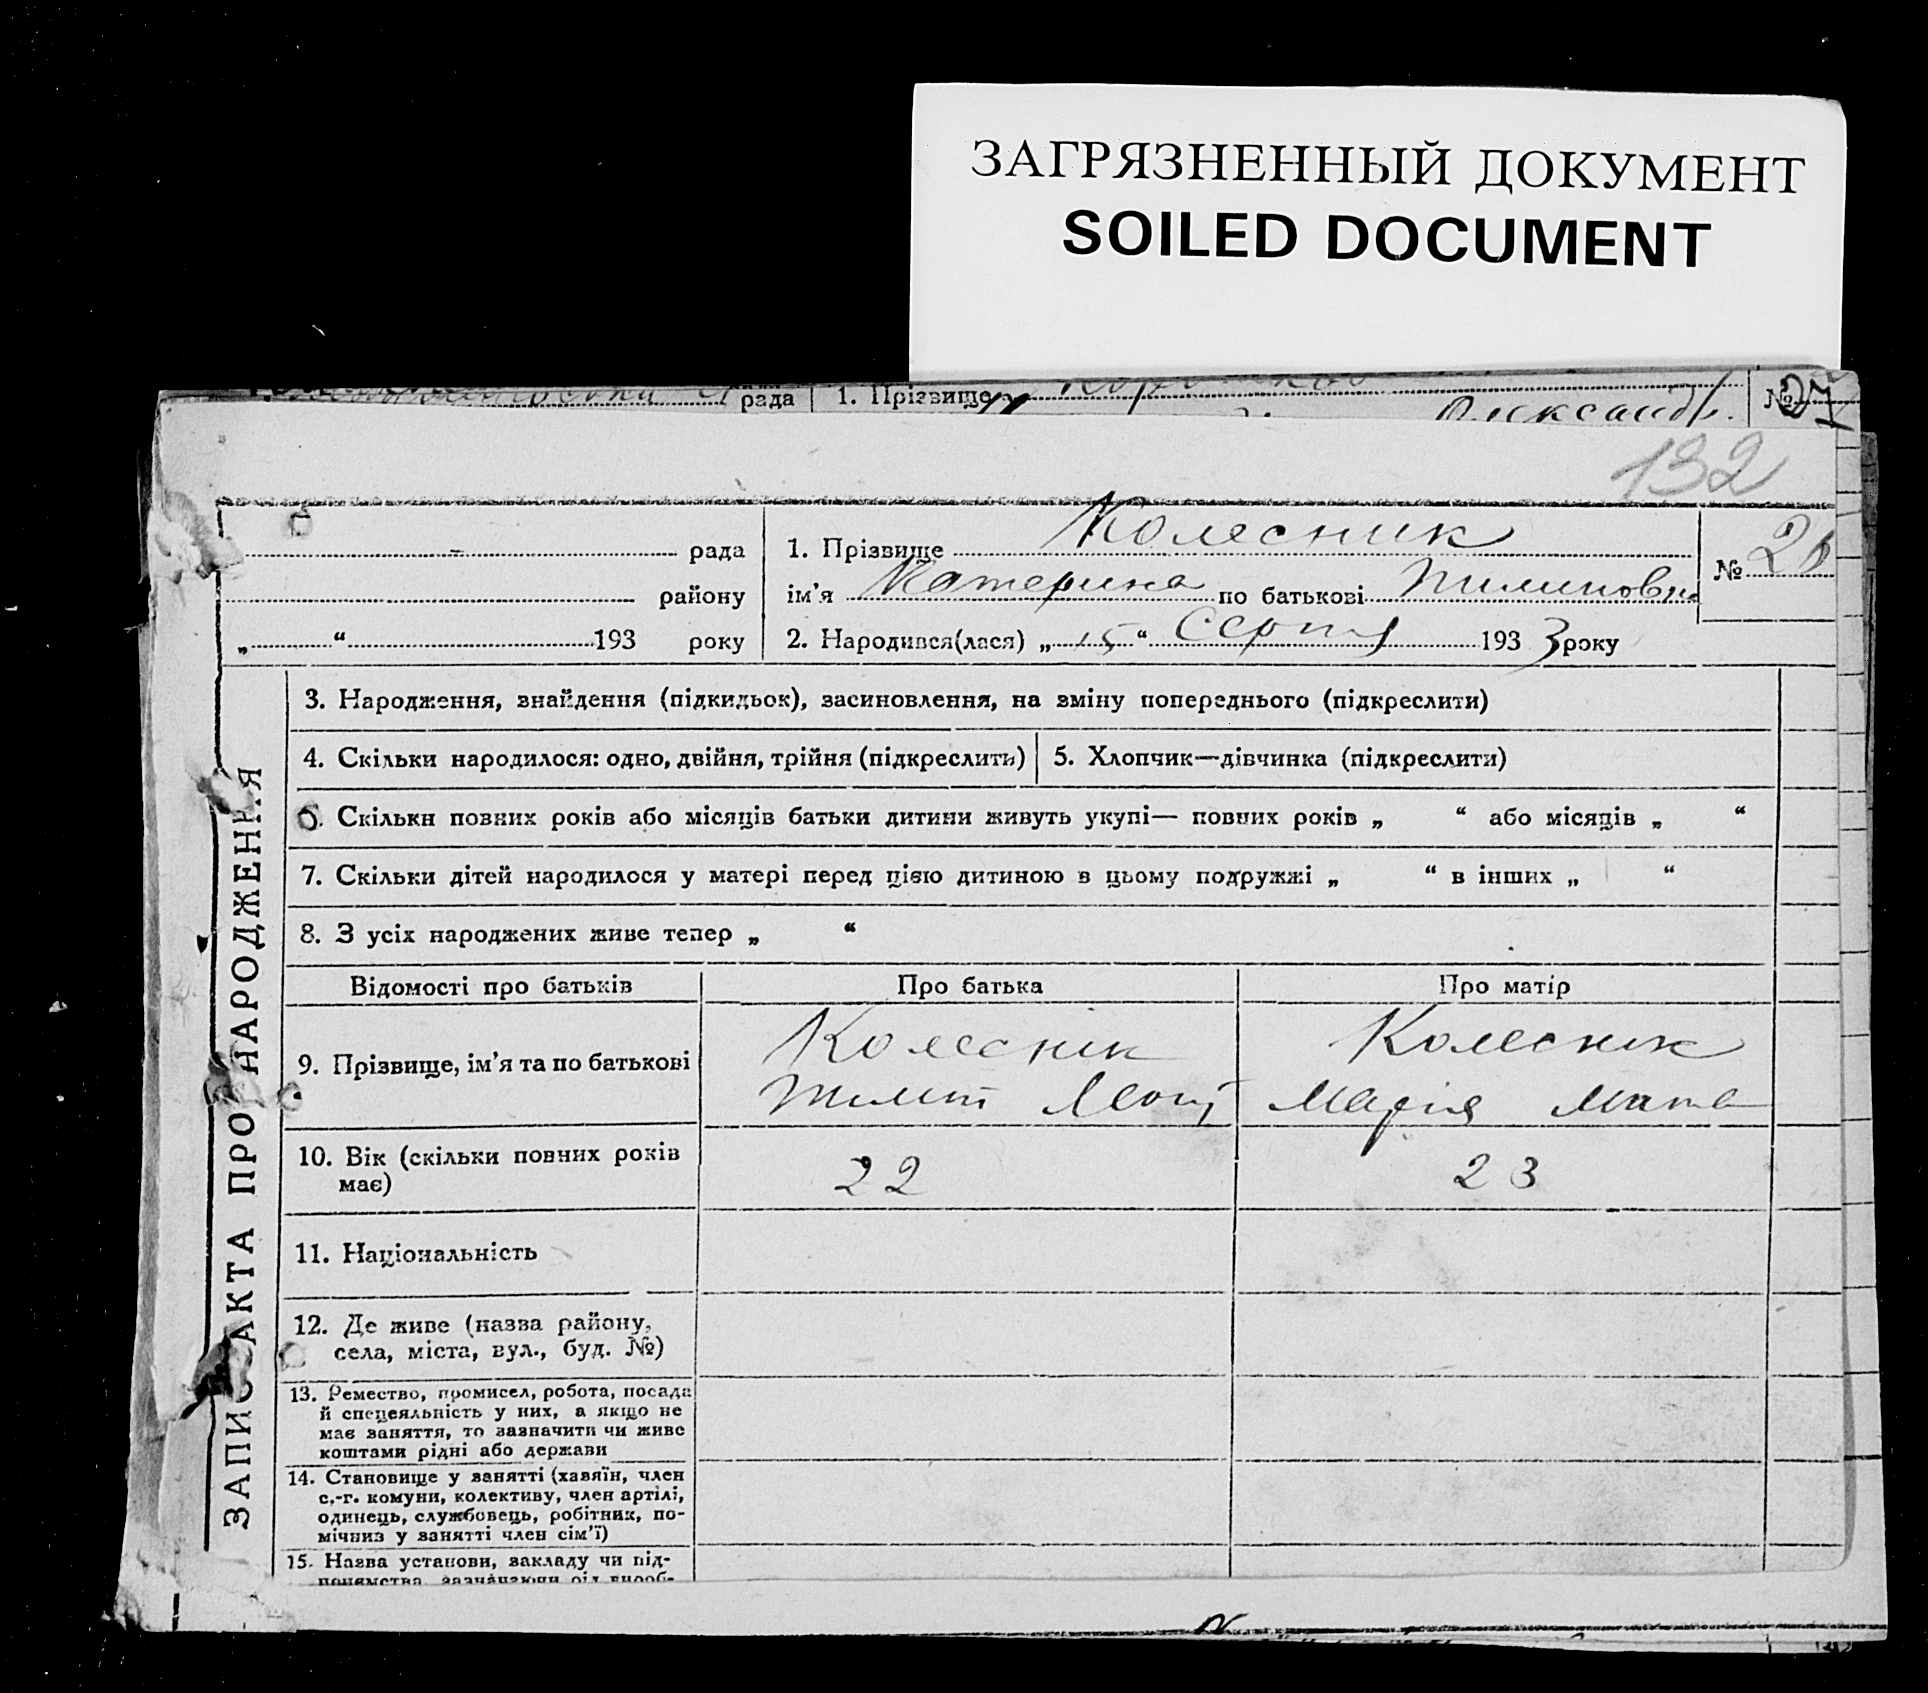 ЗАГРЯЗНЕННЫЙ ДОКУМЕНТ
SOILED DOCUMENT
рада 1. Прізвище Олександр. № 27
132
рада 1. Прізвище Колесник № 26
району ім'я Катерина по батькові Пилиповна
„ “ 193 року 2. Народився(лася) „ 15 “ Серпня 193 3 року
ЗАПИС АКТА ПРО НАРОДЖЕННЯ
3. Народження, знайдення (підкидьок), засиновлення, на зміну попереднього (підкреслити)
4. Скільки народилося: одно, двійня, трійня (підкреслити) 5. Хлопчик—дівчинка (підкреслити)
6. Скільки повних років або місяців батьки дитини живуть укупі— повних років „ “ або місяців „ “
7. Скільки дітей народилося у матері перед цією дитиною в цьому подружжі „ “ в інших „ “
8. З усіх народжених живе тепер „ “
Відомості про батьків Про батька Про матір
9. Прізвище, ім'я та по батькові Колеснік Колесник
Пилип Марія
10. Вік (скільки повних років 22 23
має)
11. Національність
12. Де живе (назва району,
села, міста, вул., буд. №)
13. Ремество, промисел, робота, посада
й спецеяльність у них, а якщо не
має заняття, то зазначити чи живе
коштами рідні або держави
14. Становище у занятті (хазяїн, член
с.-г. комуни, колективу, член артілі,
одинець, службовець, робітник, по-
мічниз у занятті член сім'ї)
15. Назва установи, закладу чи під-